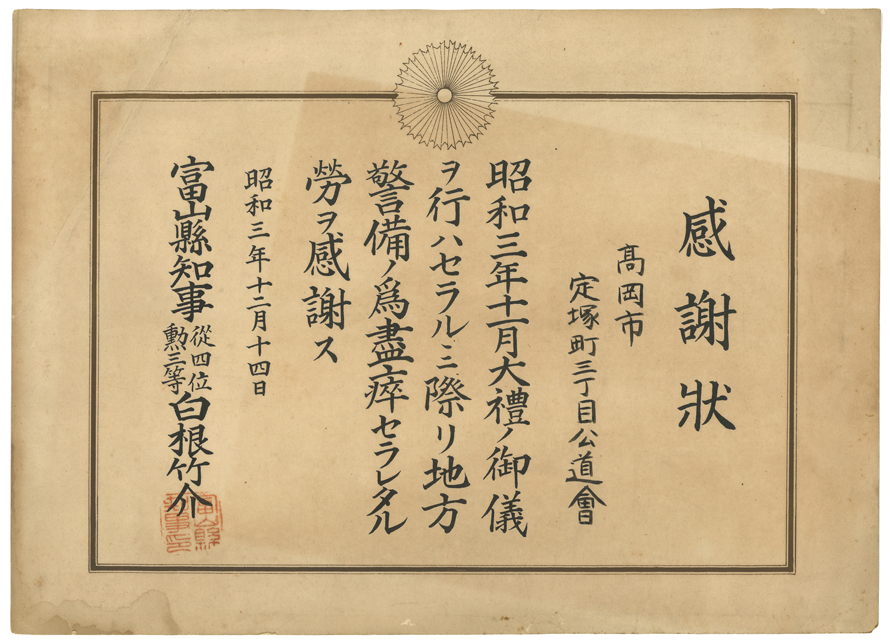 感謝狀
髙岡市
定塚町三丁目公道會
昭和三年十一月大禮ノ御儀
ヲ行ハセラルヽニ際リ地方
警備ノ爲盡瘁セラレタル
勞ヲ感謝ス
昭和三年十二月十四日
富山縣知事從四位勳三等白根竹介
富山縣知事印